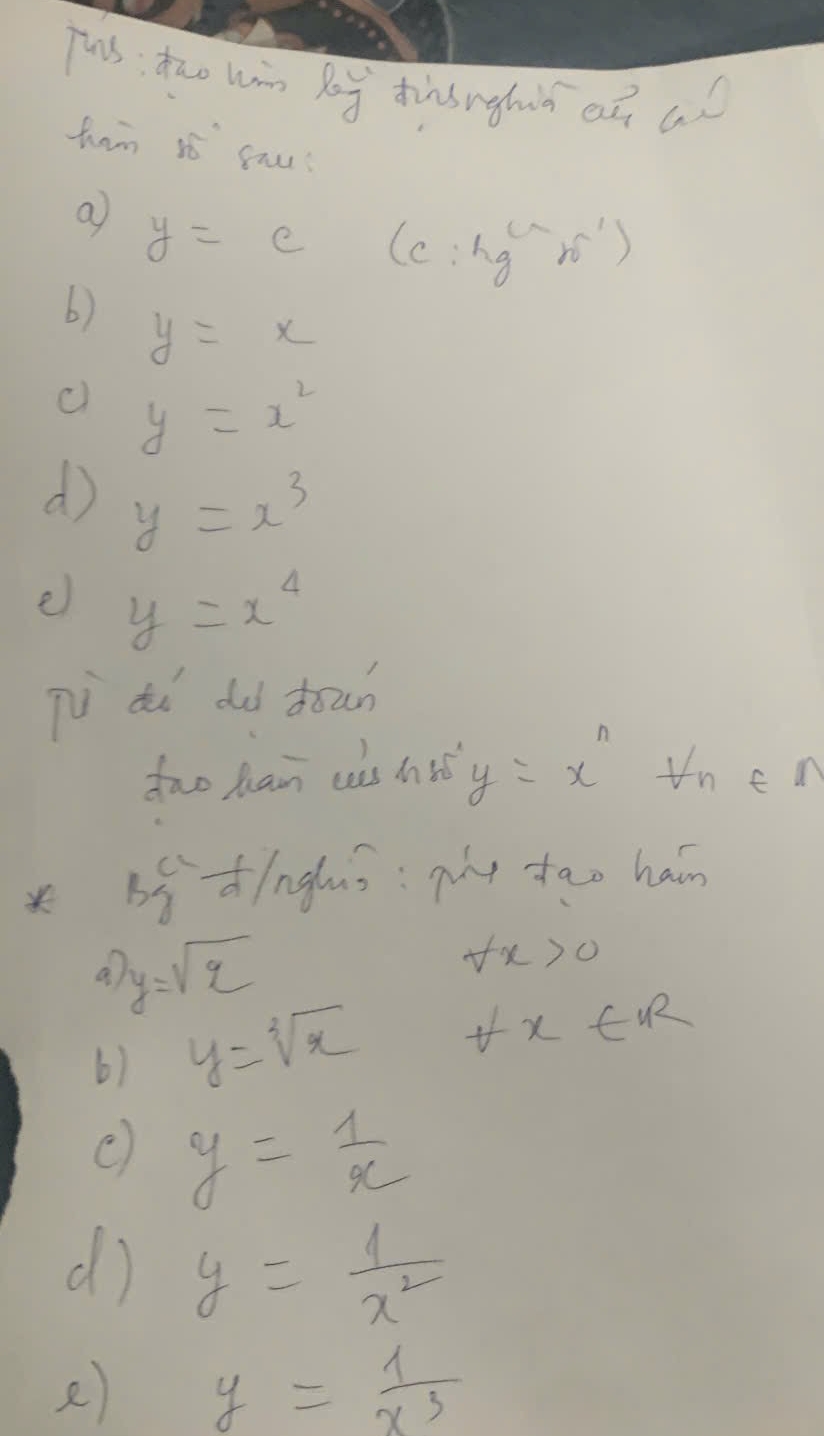 Tính: đạo hàm bằg địnhnghĩa của các
hàm số sau:
a) y = c (c : hg số)
b) y = x
c) y = x²
d) y = x³
e) y = x⁴
Từ đó dự đoán
đạo hàm của h số y = xⁿ ∀n ∈ N
* Bg đ/nghĩa : tính đạo hàm
a) y = √x ∀x > 0
b) y = ∛x ∀x ∈ R
c) y = 1/x
d) y = 1/x²
e) y = 1/x³